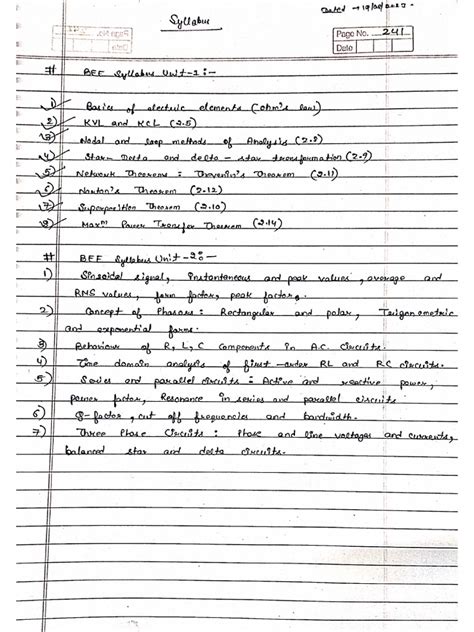 Syllabus
Dated → 19/06/2023.
Page No. 241
Date
# BEE Syllabus Unit-1 :-
1) Basics of electric elements (ohm's law)
2) KVL and KCL (2.5)
3) Nodal and loop methods of Analysis (2.8)
4) Star-Delta and delta-star transformation (2.9)
5) Network Theorems : Thevenin's Theorem (2.11)
6) Norton's Theorem (2.12)
7) Superposition Theorem (2.10)
8) Maxm Power Transfer Theorem (2.14)
# BEE Syllabus Unit-2 :-
1) Sinsoidal signal, instantaneous and peak values, average and
RNS values, form factor, peak factor.
2) Concept of Phasors : Rectangular and polar, Trigonometric
and exponential forms.
3) Behaviour of R, L, C Components in A.C. circuits.
4) Time domain analysis of first-order RL and RC circuits.
5) Series and parallel circuits : Active and reactive power,
power factor, Resonance in series and parallel circuits
6) Q-factor, cut off frequencies and bandwidth.
7) Three Phase Circuits : Phase and line voltages and currents,
balanced star and delta circuits.